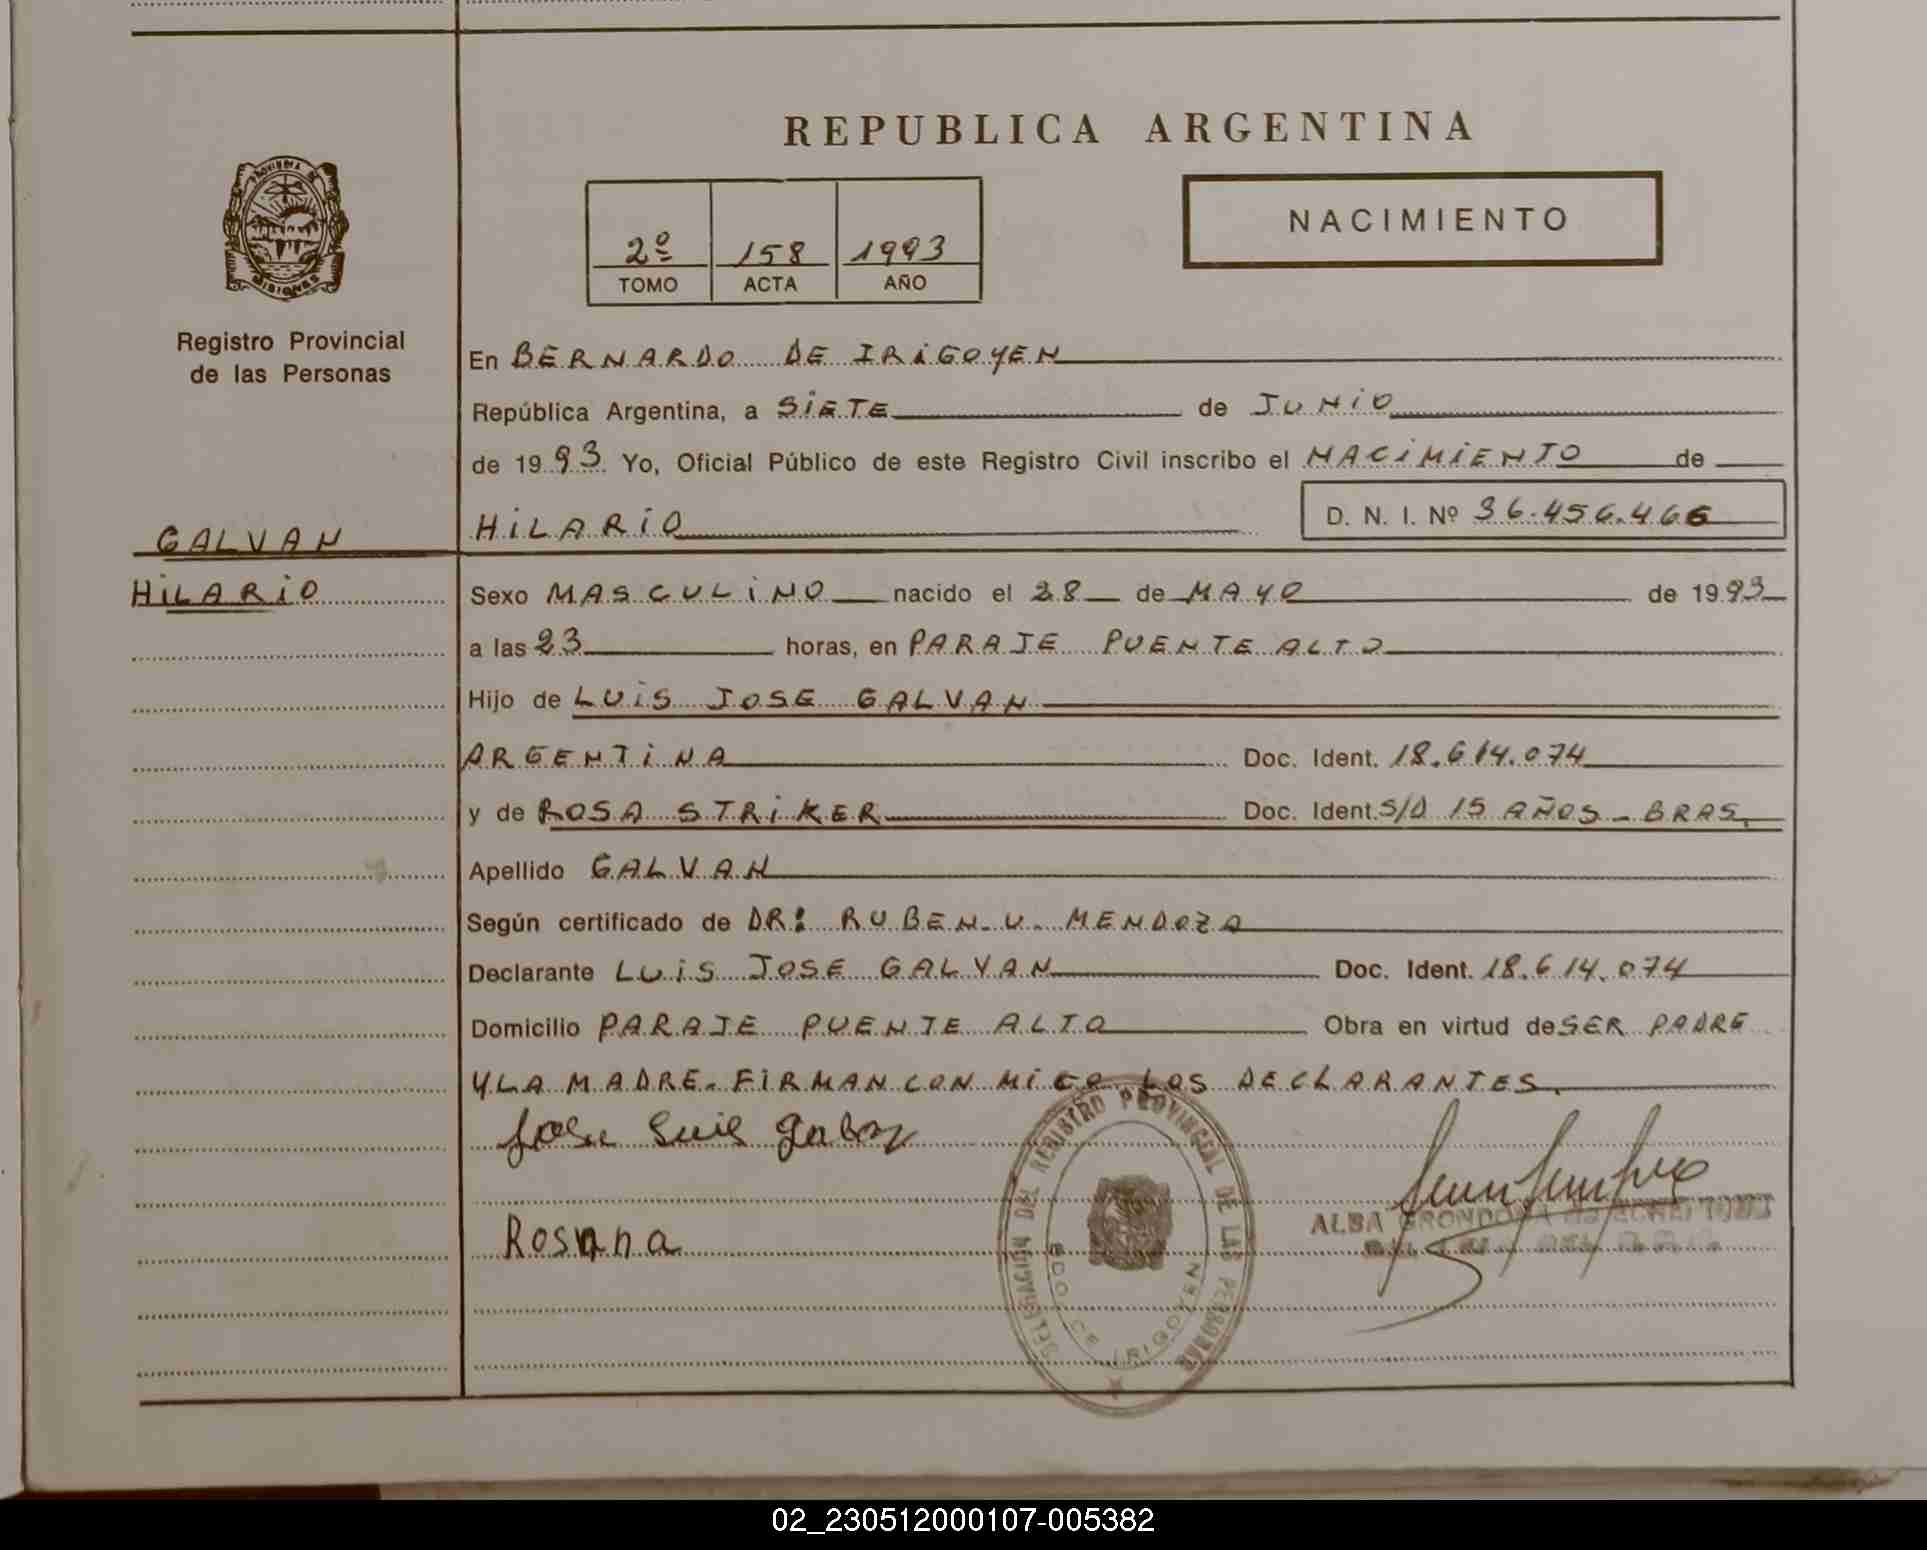 REPUBLICA ARGENTINA
NACIMIENTO
2º 158 1993
TOMO ACTA AÑO
PROVINCIA DE
MISIONES
Registro Provincial
de las Personas
En BERNARDO DE IRIGOYEN
República Argentina, a SIETE de JUNIO
de 1993 Yo, Oficial Público de este Registro Civil inscribo el NACIMIENTO de
HILARIO D. N. I. Nº 36.456.466
GALVAN
HILARIO
Sexo MASCULINO nacido el 28 de MAYO de 1993
a las 23 horas, en PARAJE PUENTE ALTO
Hijo de LUIS JOSE GALVAN
ARGENTINA Doc. Ident. 18.614.074
y de ROSA STRIKER Doc. Ident. S/D 15 AÑOS - BRAS.
Apellido GALVAN
Según certificado de DR: RUBEN. U. MENDOZA
Declarante LUIS JOSE GALVAN Doc. Ident. 18.614.074
Domicilio PARAJE PUENTE ALTO Obra en virtud de SER PADRE
Y LA MADRE. FIRMAN CON MIGO LOS DECLARANTES.
Jose Luis
Rosana
DELEGACION DEL REGISTRO PROVINCIAL DE LAS PERSONAS
BDO DE IRIGOYEN
ALBA GRONDONA
02_230512000107-005382